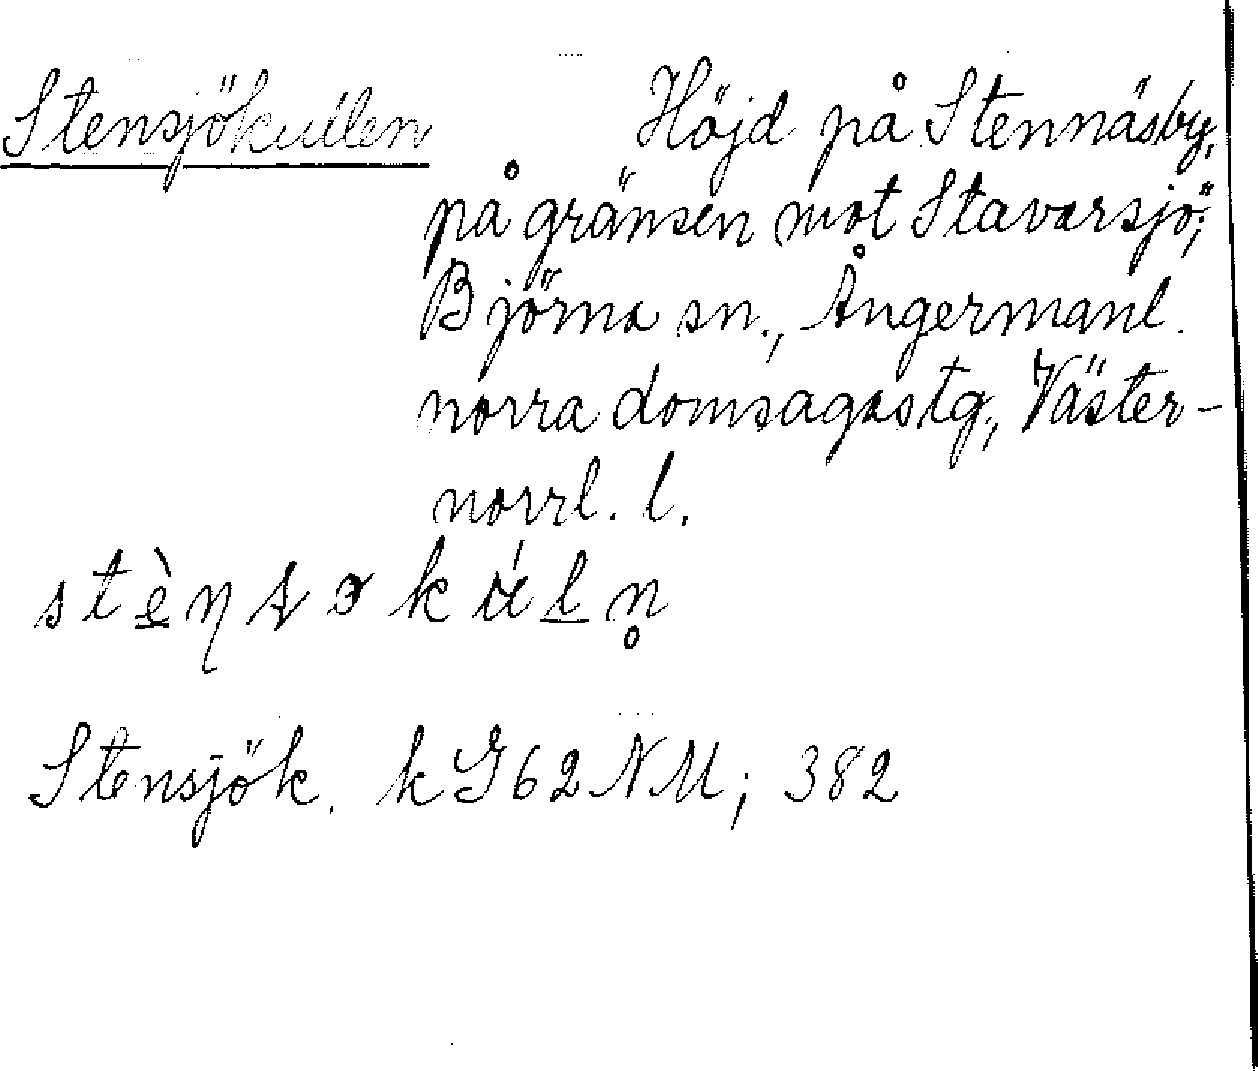 Stensjökullen Höjd på Stennäsby,
på gränsen mot Stavarsjö;
Björna sn., Ångermanl.
norra domsagastg., Väster-
norrl. l.
Stensjök. k G 62 NM; 382